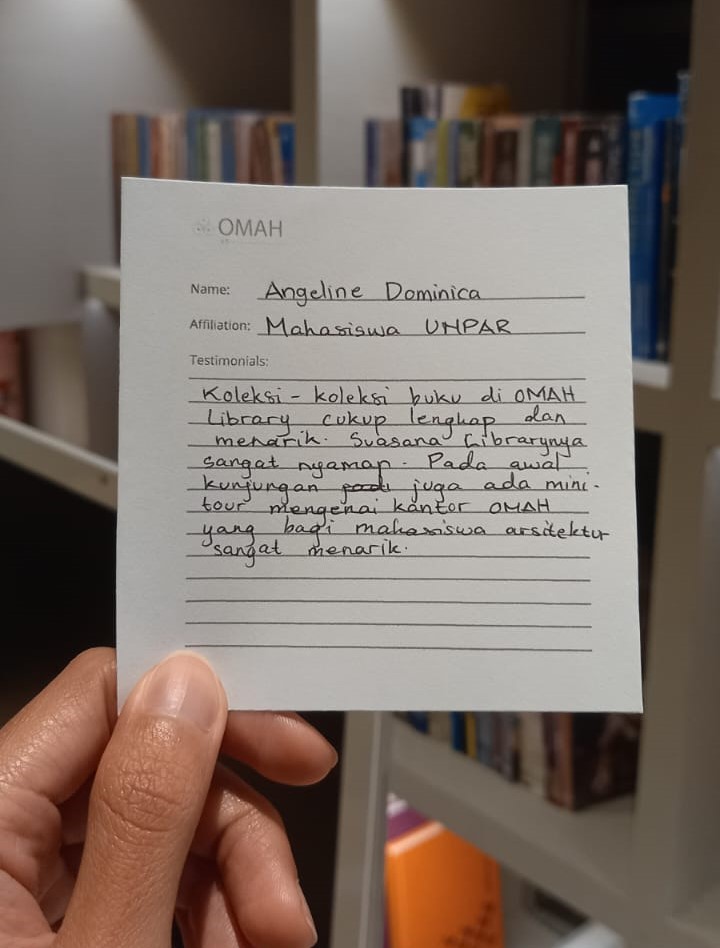 OMAH
Name: Angeline Dominica
Affiliation: Mahasiswa UNPAR
Testimonials:
Koleksi - koleksi buku di OMAH
Library cukup lengkap dan
menarik. Suasana Librarynya
sangat nyaman. Pada awal
kunjungan juga ada mini-
tour mengenai kantor OMAH
yang bagi mahasiswa arsitektur
sangat menarik.